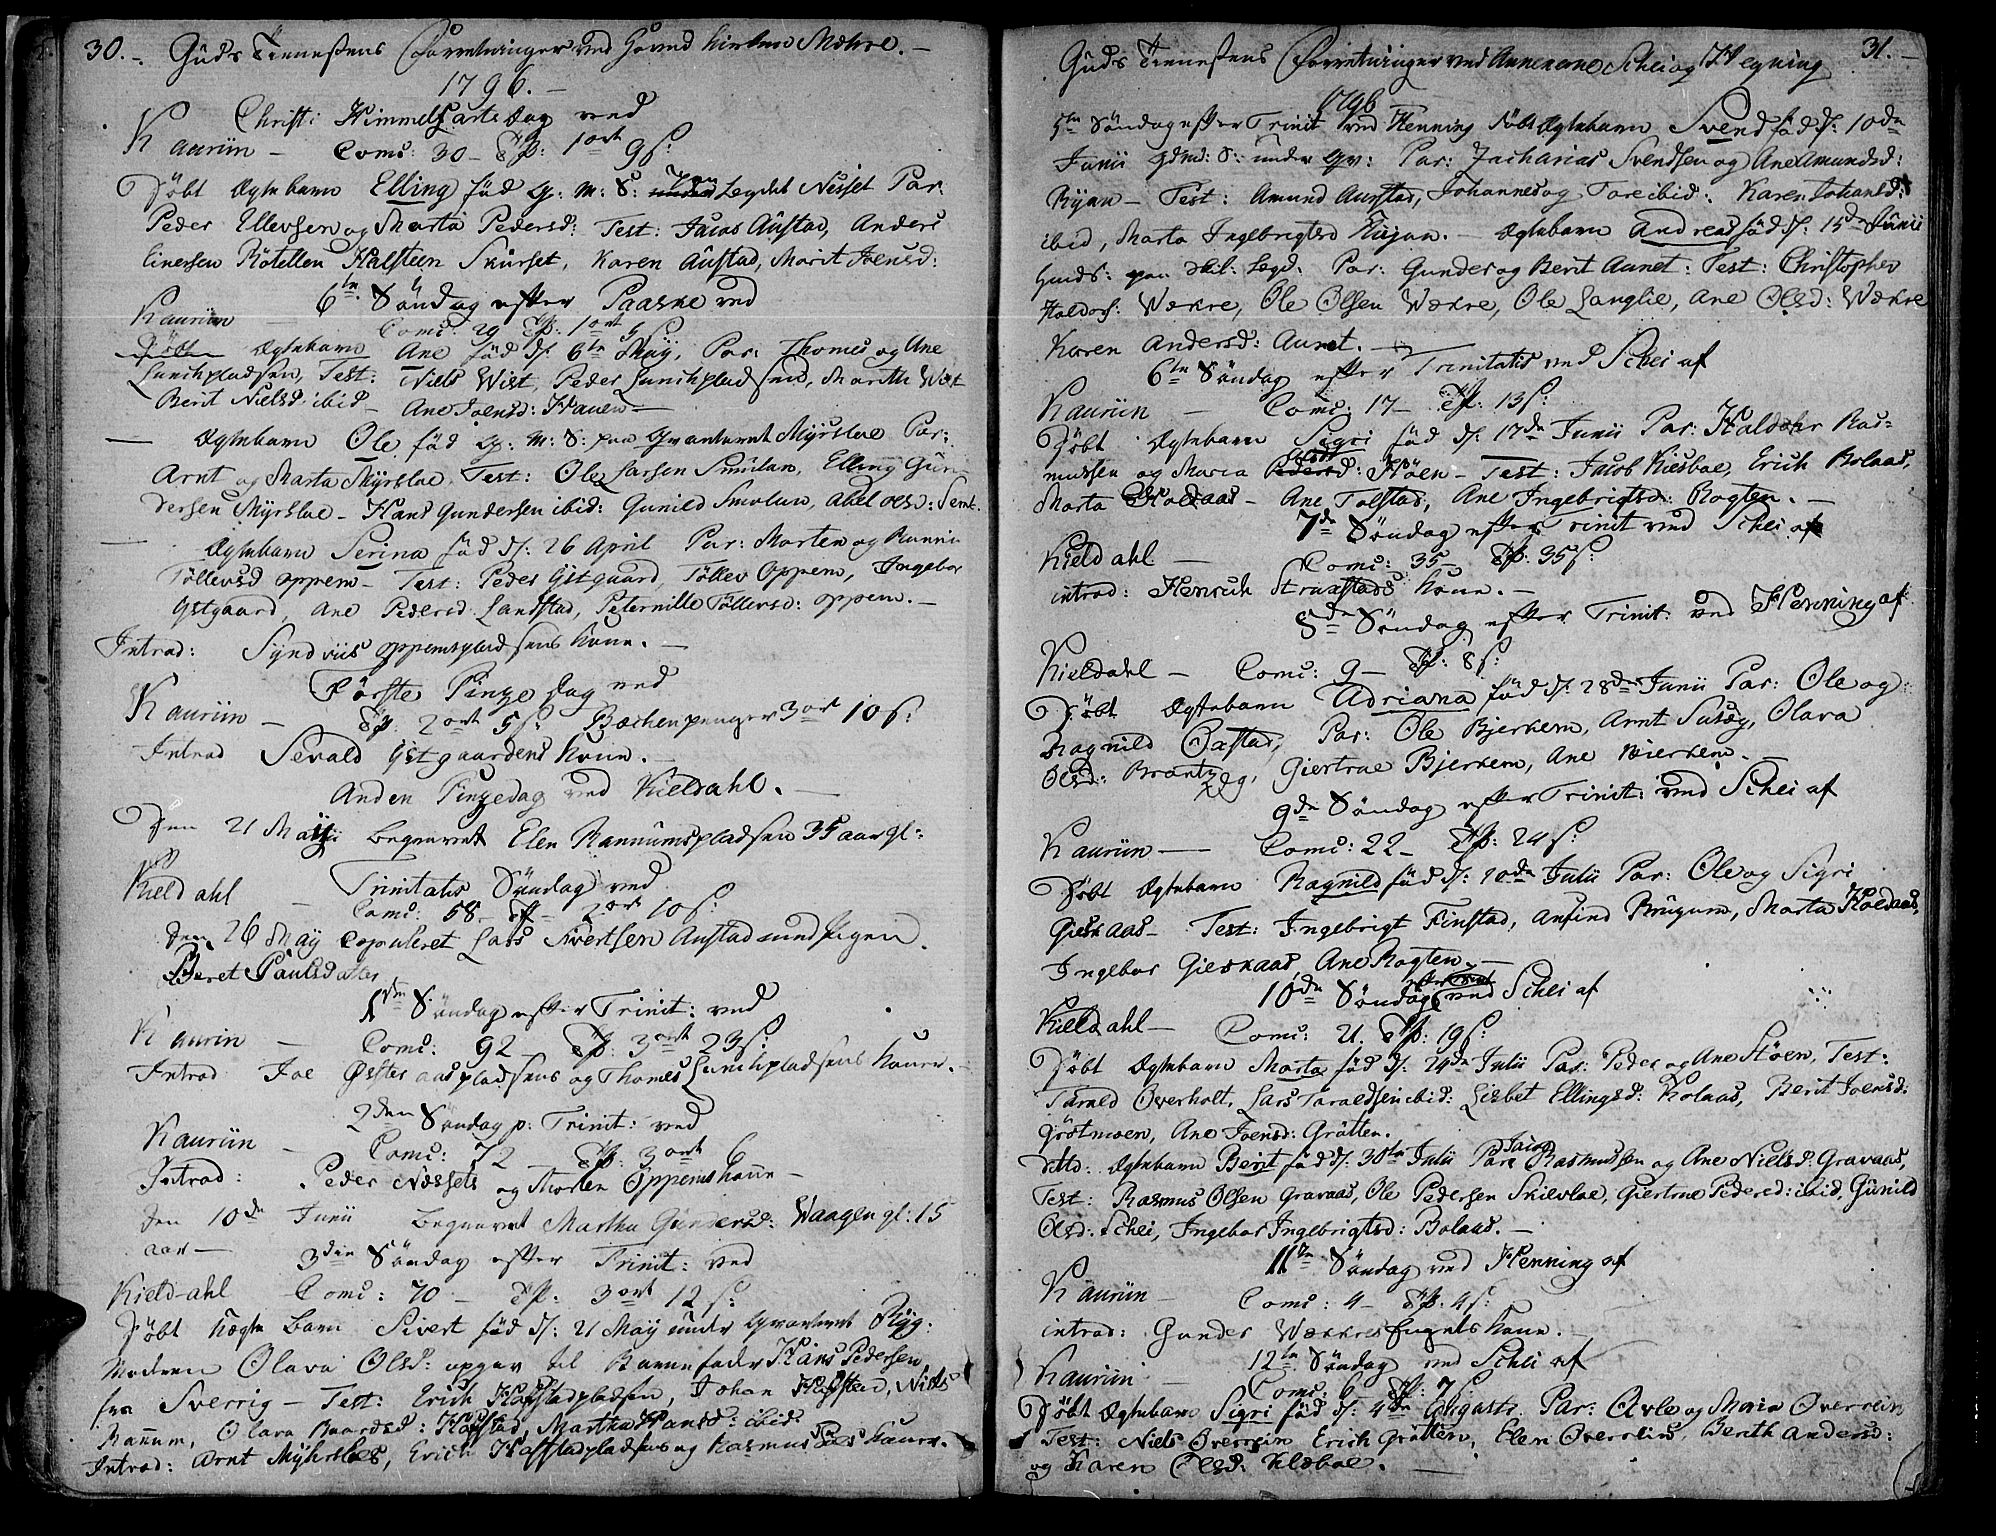 30.- Guds Tienestens Forretninger ved Hoved Kirken Mæhre.-
1796.-
Christi Himmelfarts Dag ved
Kauriin - Comu: 30- Tp: 1 ort 9 s:
Døbt Ægtebarn Elling fød g. m: S: paa Legdet Nesset Par:
Peder Ellevsen og Marta Pedersd: Test: Jacob Austad, Anders
Einersen Rotellen Halsteen Skurset, Karen Austad, Marit Joensd:
6te Søndag efter Paaske ved
Kauriin - Comu: 29 Tp: 1 ort 5 s:
Døbt Ægtebarn Ane fød d: 6te May, Par: Thomes og Ane
Lunchpladsen, Test: Niels Wist, Peder Lunchpladsen, Marith Wist
Berit Nielsd ibid - Ane Joensd: Hauen -
- Ægtebarn Ole fød g. m: S: paa Qvarteret Myrslae Par:
Arnt og Marta Myrslae Test: Ole Larsen Smulan, Elling Gun-
dersen Myrslae - Hans Gundersen ibid: Gunild Smolan, Abel olsd: Semb.
- Ægtebarn Serina fød d: 26 April Par: Morten og Rannie
Tøllevsd oppem - Test: Peder Gystgaard, Tøllev Oppem, Ingebor
Ystgaard, Ane Pedersd Landstad, Peternille Tøllevsd: oppem.-
Introd: Syndviis oppemspladsens Kone.-
Første Pinze Dag ved
Kauriin - Tp. 2 ort 5 s: Bæckenpenger 3 ort 10 s:
Introd Sevald Ystgaardens Kone.-
Anden Pinzedag ved Kieldahl.-
Den 21 Mayi begravet Elen Rannumspladsen 35 aar gl:
Trinitatis Søndag ved
Kieldahl - Comu: 58 - Tp - 2 ort 10 s:
Den 26 May Copuleret Lars Sivertsen Austad med Pigen
Beret Paulsdatter
1den Søndag efter Trinit: ved
Kaurin - Comu: 92 - Tp: 3 ort 23 s:
Introd Joe Østeraaspladsens og Thomes Lunchpladsens Koner.-
2den Søndag p: Trinit: ved
Kauriin - Comu: 72 - Tp: 3 ort 6
Introd: Peder Nessets og Morten Oppems Kone -
Den 10de Junii begravet Martha Gundersd: Waagen gl: 15
aar -
3die Søndag efter Trinit: ved
Kieldahl - Comu: 70 - Tp. 3 ort 12 s:
Døbt uægte Barn Sivert fød d: 21 May under Qvarteret Rygg:
Moderen Olava Olsd: opgav til Barnefader Hans Pedersen
fra Sverrig - Test: Erich Hafstadpladsen, Johan Hafstad, Niels
Rannum, Olava Baardsd: Hafstad, Martha Hansd: ibid
Introd: Arnt Myhrslaes, Erich Hafstadpladsens og Rasmus Koner.-
31.-
Guds Tienestens Forretninger ved Annexerne Schei og Hegning
1796
5te Søndag efter Trinit ved Henning Døbt Ægtebarn Svend fød d: 10de
Junii gdmd: S: under Qv: Par: Zacharias Svendsen og Ane Amundsd:
Ryan - Test: Amund Aurstad, Johannes og Tore ibid. Karen Johansd:
ibid, Marta Ingebrigtsd Ryan. - Ægtebarn Andreas fød d: 15de Junii
paa Legd: Par: Gunder og Berit Aunet: Test: Christopher
Haldors: Wækre, Ole Olsen Wækre, Ole Langlie, Ane Olsd: Wækre
Karen Andersd: Aunet.-
6te Søndag efter Trinitatis ved Schei af
Kauriin - Comu: 17 - Tp. 13 s:
Døbt Ægtebarn Sigri fød d: 17de Junii Par: Haldohr Ras-
mussen og Maria Støen - Test: Jacob Kiesbae, Erich Bolaas,
Marta Koldaas - Ane Tolstad, Ane Ingebrigtsd: Rogten.-
7de Søndag efter Trinit ved Schei af
Kieldahl - Comu: 35 - Tp. 35 s:
introd: Henrich Straxstads Kone.-
8de Søndag efter Trinit: ved Henning af
Kieldahl - Comu: 9 - Tp: 8 s:
Døbt Ægtebarn Adriana fød d: 28de Junii Par: Ole og
Ragnild Oxstad, Par: Ole Bjerkem, Arnt Sutæg, Olava
Olsd: Brantzæg, Giertrue Bjerkem, Ane Bierkem.-
9de Søndag efter Trinit: ved Schei af
Kauriin - Comu: 22 - Tp: 24 s:
Døbt Ægtebarn Ragnild fød d: 10de Julii Par: Ole og Sigri
Gieskaas - Test: Ingebrigt Finstad, Anfind Brugum, Marta Koldaas,
Ingebor Gieskaas, Ane Rogten.-
10de Søndag efter Trinit ved Schei af
Kieldahl - Comu: 21. Tp: 19 s:
Døbt Ægtebarn Marta fød d: 24de Julii Par: Peder og Ane Støen, Test:
Tarald Overholt, Lars Taraldsen ibid: Lisbet Ellingsd: Kolaas, Berit Joensd:
Grøtmoen, Ane Joensd: Gratten.
ditto: Ægtebarn Berit fød d: 30te Julii Par: Jacob Rasmussen og Ane Nielsd: Gravaas,
Test: Rasmus Olsen Gravaas, Ole Pedersen Skievlae, Giertrue Pedersd: ibid, Gunild
Olsd: Schei, Ingebor Ingebrigtsd: Bolaas.-
11te Søndag ved Henning af
Kauriin - Comu: 4 - Tp: 4 s:
introd: Gunder Wækkres Kone.-
12te Søndag ved Schei af
Kauriin - Comu: 6 Tp: 7 s:
Døbt Ægtebarn Sigri fød d: 4de Augusti. Par: Arle og Maria Overrein
Test: Niels Overrein Erich Gratten, Elen Overrein, Berith Andersd:
og Karen Olsd: Klæboe.-